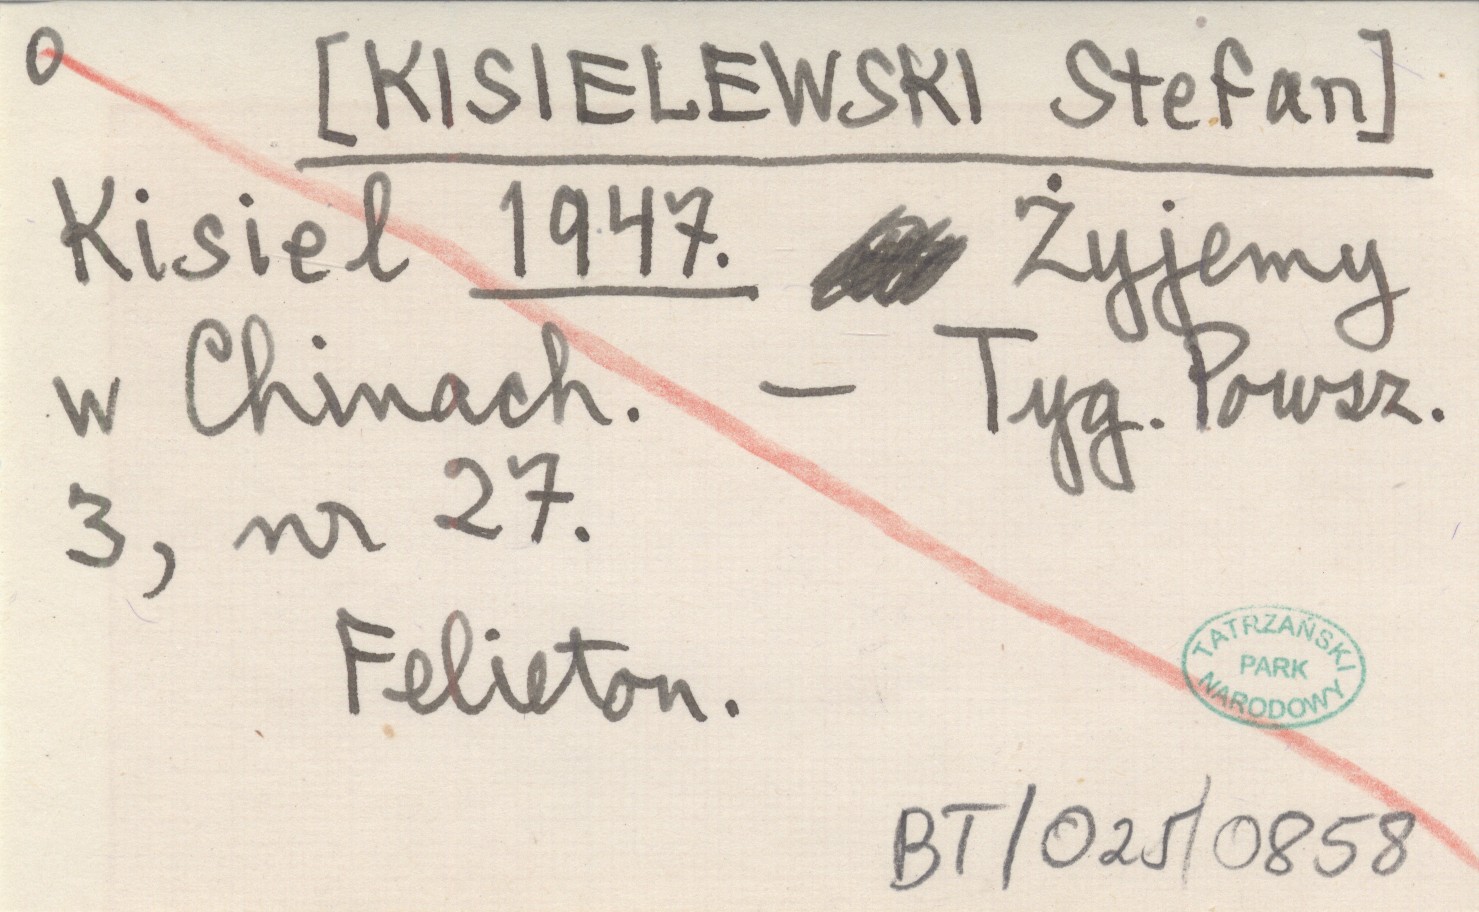 O [KISIELEWSKI Stefan]
Kisiel 1947. Żyjemy
w Chinach. — Tyg. Powsz.
3, nr 27.
Felieton.
TATRZAŃSKI
PARK
NARODOWY
BT/025/0858